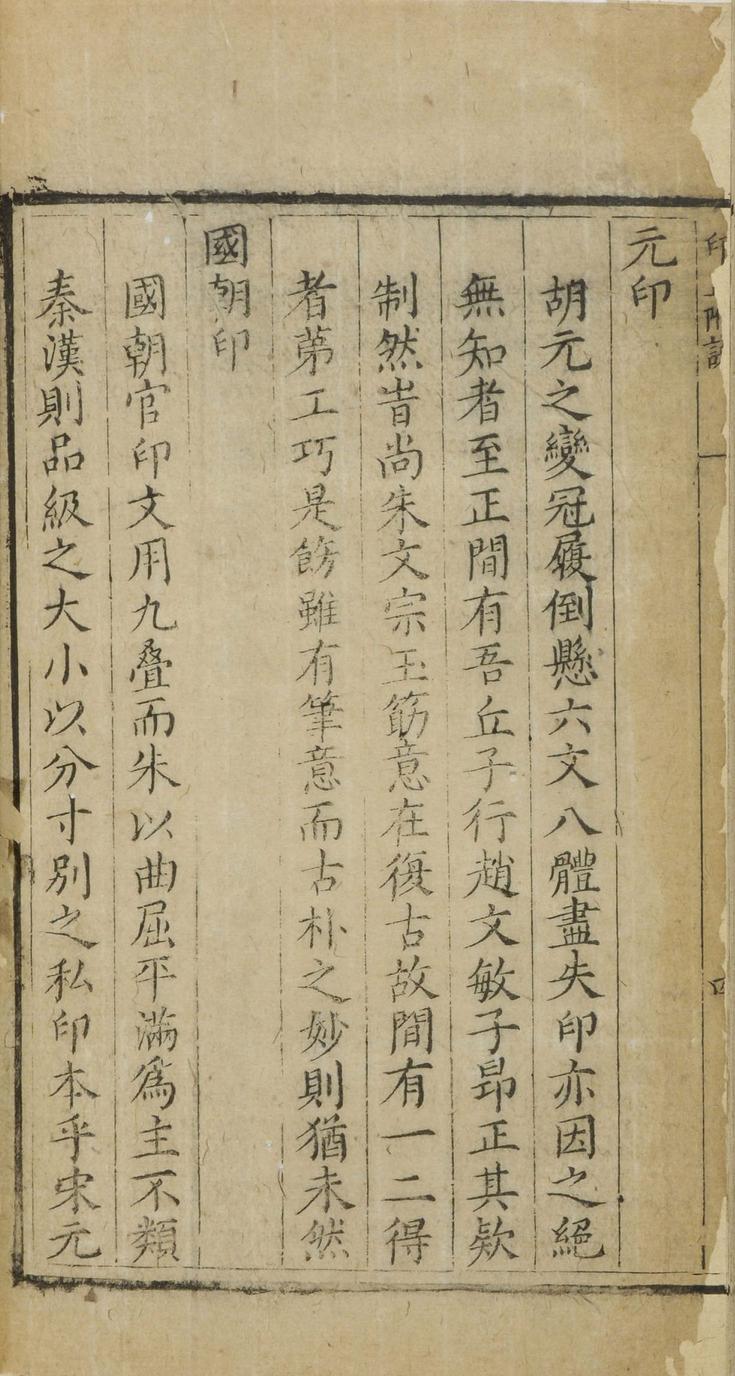 元印
胡元之變冠履倒懸六文八體盡失印亦因之絕
無知者至正間有吾丘子行趙文敏子昂正其欵
制然皆尚朱文宗玉筯意在復古故間有一二得
者第工巧是飭雖有筆意而古朴之妙則猶未然
國朝印
國朝官印文用九叠而朱以曲屈平滿為主不類
秦漢則品級之大小以分寸別之私印本乎宋元